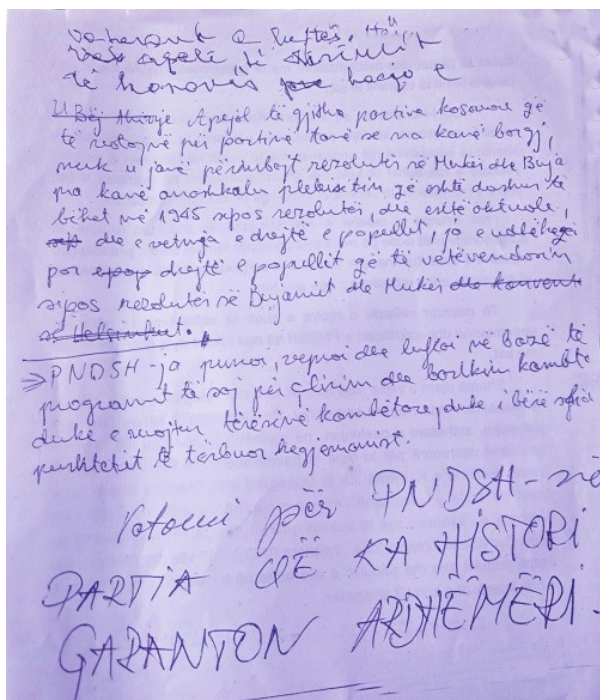 e luftës.
të
të kosovës hecjo e
U Bëj thirrje Apejol të gjitha partive kosovare që
të votojnë për partinë tonë se na kanë borgj,
nuk u janë përmbajt rezolutës në Mukës dhe Buja
na kanë anashkalu plebisitin që eshtë dashur të
bëhet në 1945 sipos rezolutës, dhe eshtë aktuale,
dhe e vetmja e drejtë e popullit, jo e udhëheqsi
por drejtë e popullit që të vetëvendosin
sipas rezolutës në Bujanit dhe Mukës dhe konvent
së Helsinkut.
PNDSH-ja punoi, veproi dhe luftoi në bazë të
programit të saj për çlirim dhe bashkim kombët
duke e ruajtur tërësinë kombëtare, duke i bërë sfid
pushtetit të tërbuar hegjemonist.
Votoni për PNDSH-në
PARTIA QË KA HISTORI
GARANTON ARDHËMËRI.